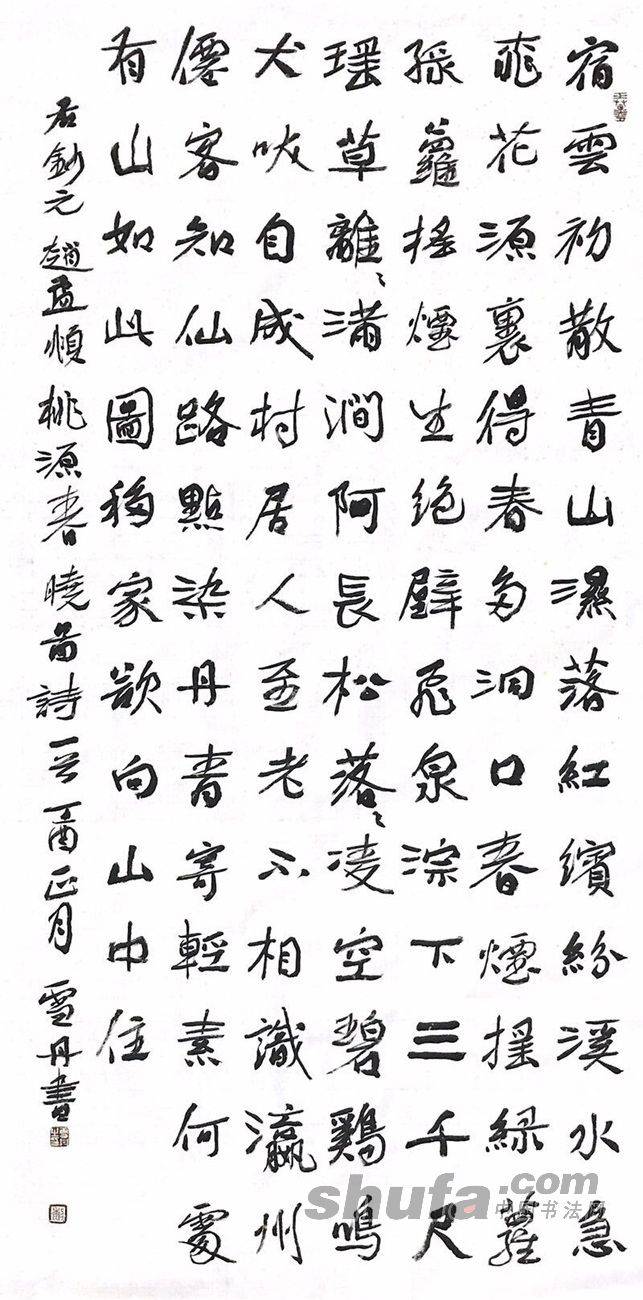 宿雲初散青山濕落紅繽紛溪水急
桃花源裏得春多洞口春煙搖綠蘿
綠蘿搖煙生絕壁飛泉淙下三千尺
瑤草離〻滿澗阿長松落〻凌空碧鷄鳴
犬吠自成村居人至老不相識瀛州
僊客知仙路點染丹青寄輕素何處
有山如此圖移家欲向山中住
右鈔元趙孟頫桃源春曉圖詩一首丁酉正月雪丹書
shufa.com
中国书法网